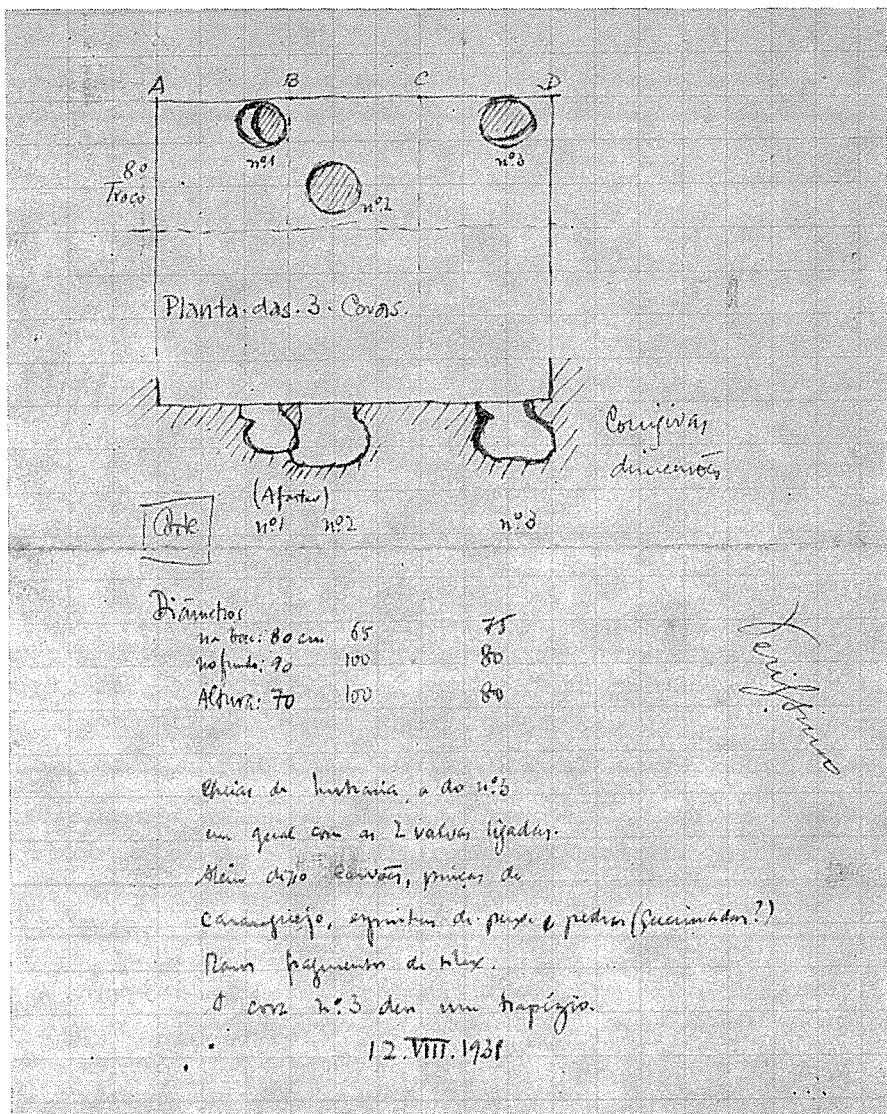 A B C D
nº1
nº3
8º
Troço
nº2
Planta das 3 Covas.
Corrigir as
dimensões
(Afastar)
Corte nº1 nº2 nº3
Diâmetros
na boca: 80 cm 65 75
no fundo: 90 100 80
Altura: 70 100 80
Cheias de lutraria, a do nº3
em geral com as 2 valvas ligadas.
Além disso carvões, pinças de
caranguejo, espinhas de peixe e pedras (queimadas?)
Raros fragmentos de silex.
A cova nº3 deu um trapézio.
12.VIII.1938